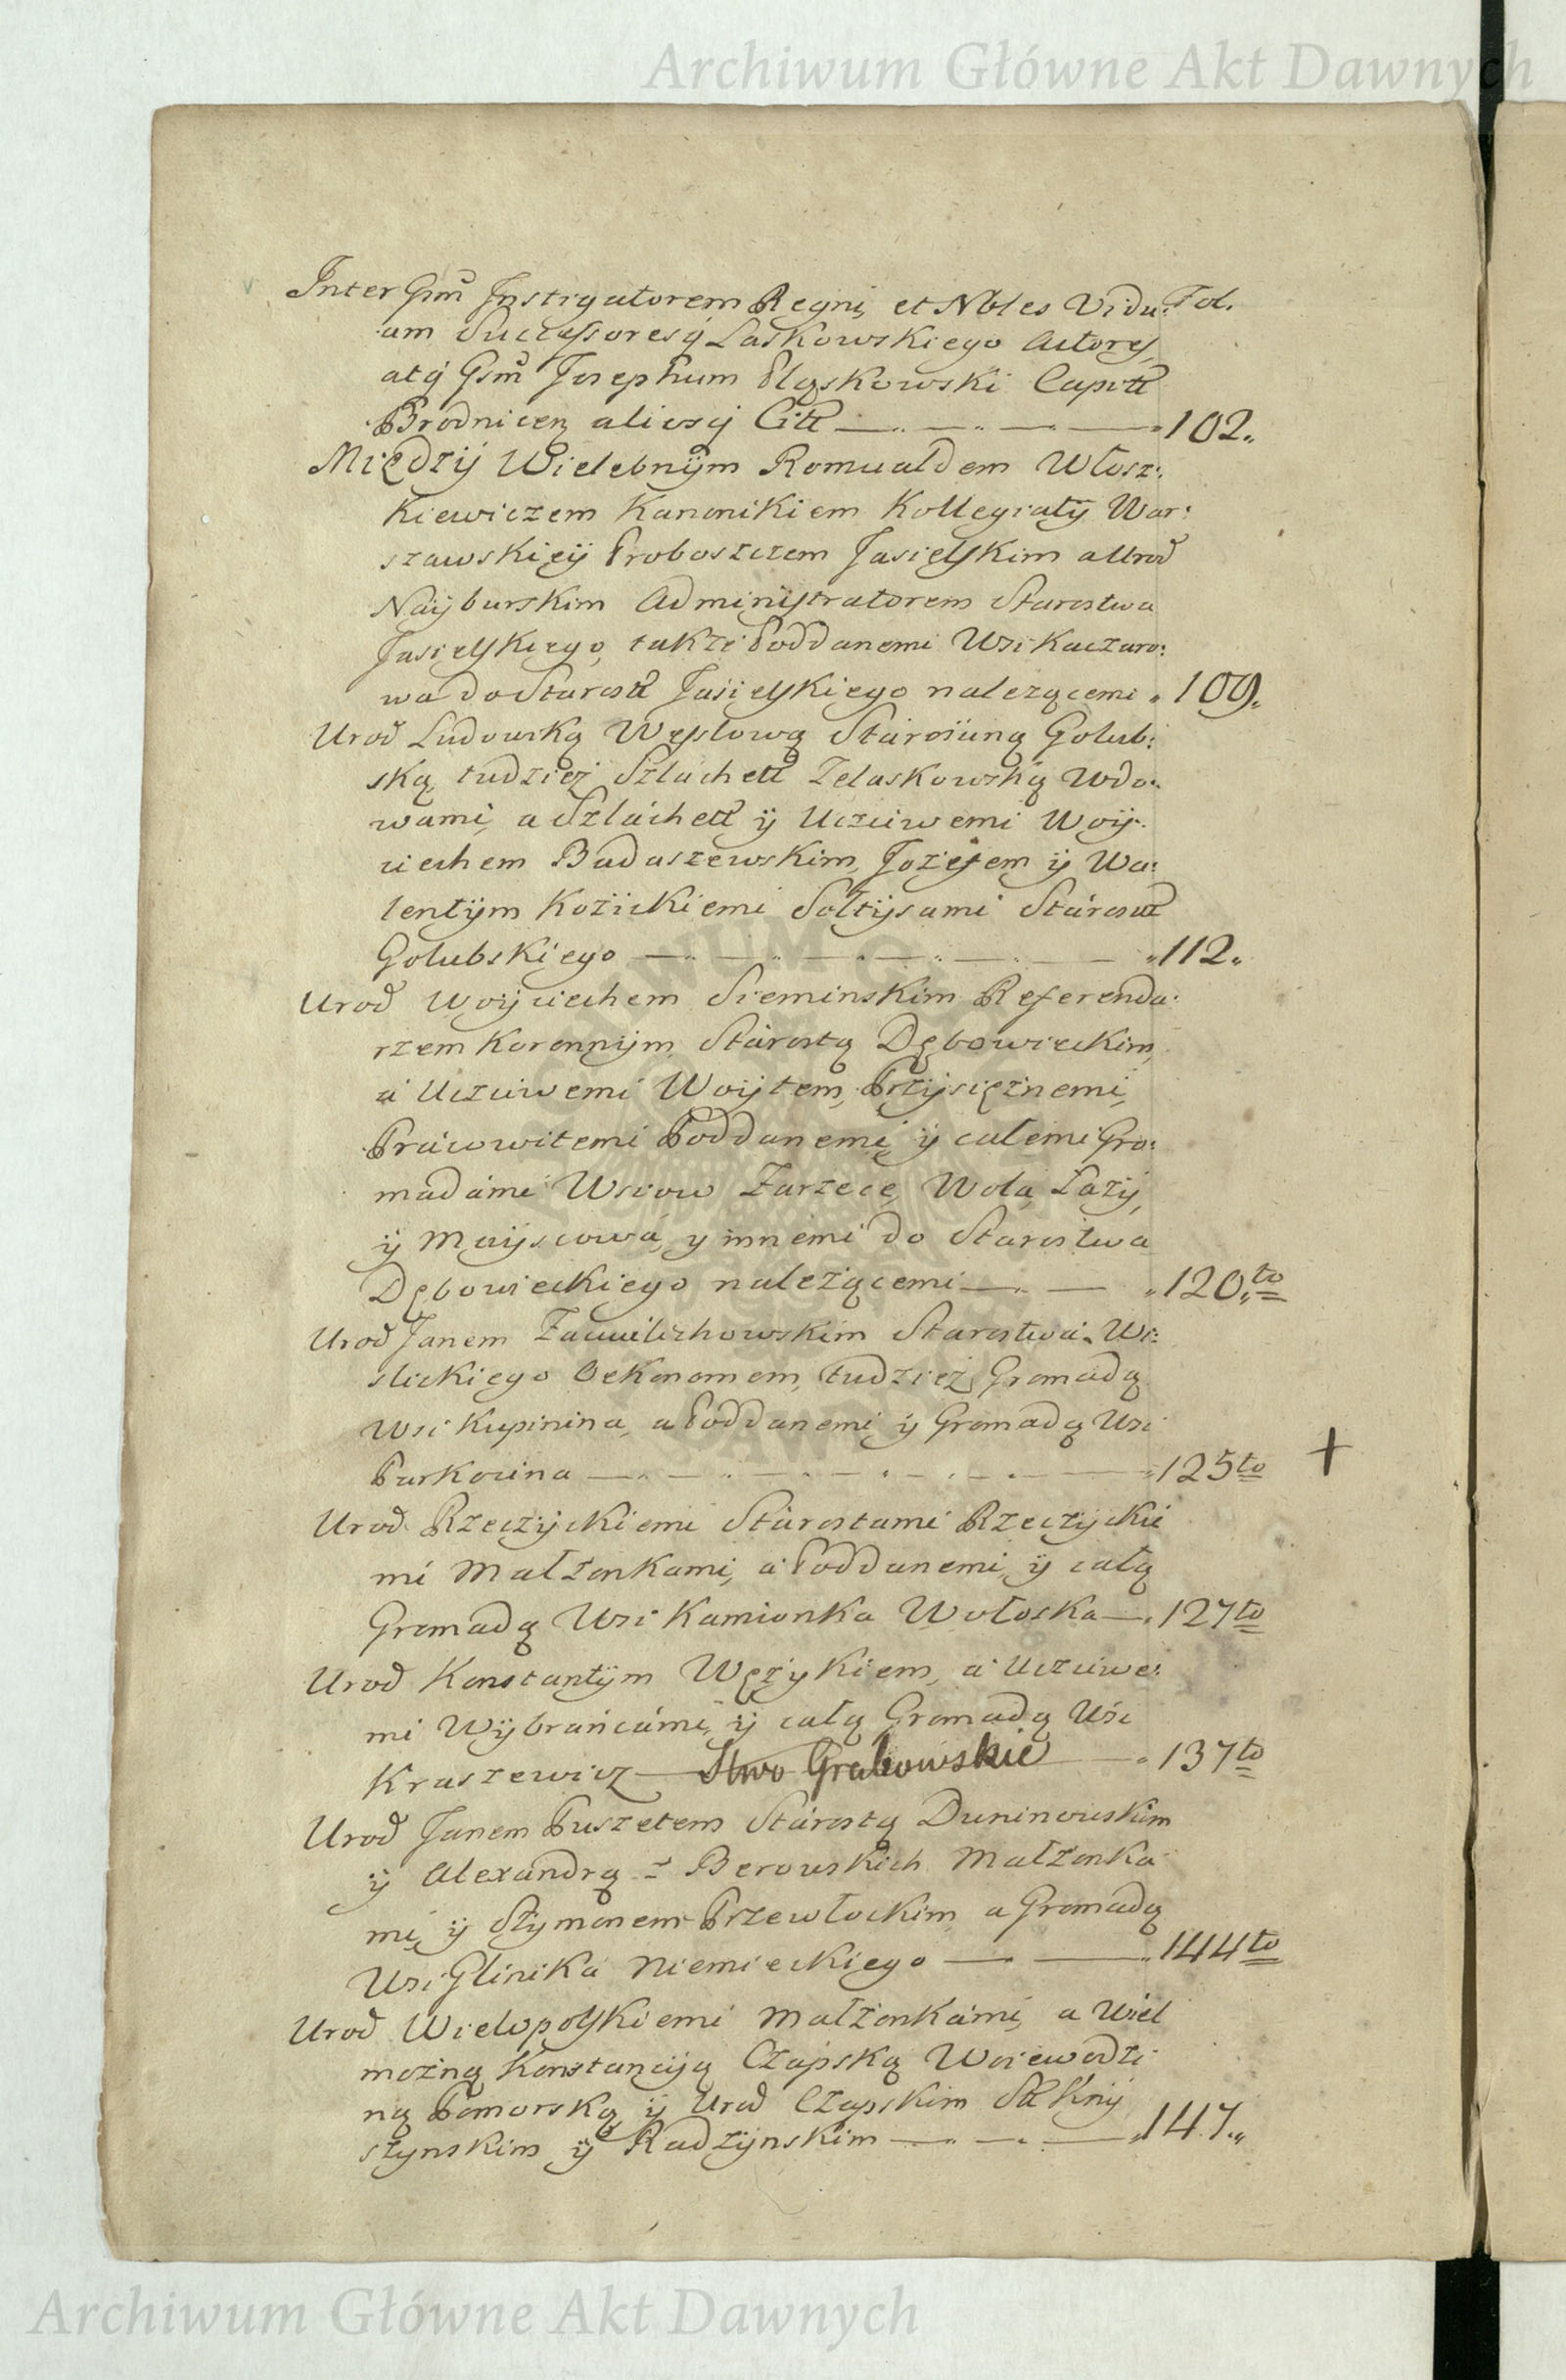 Archiwum Główne Akt Dawnych
Inter Gsm Instigatorem Regni, et Nobles Vidu: Fol.
am Successoresq Laskowskiego Actores,
atq Gsm Josephum Pląskowski Capitt
Brodnicen aliosq Citt 102.
Między Wielebnÿm Romualdem Włosz:
kiewiczem Kanonikiem Kollegiaty War:
szawskieÿ Proboszczem Jasielskim a Urod
Naÿburskim Administratorem Starostwa
Jasielskiego, także Poddanemi Wsi Kaczaro:
wa do Starostt Jasielskiego nalezącemi 109.
Urod Ludowiką Wesslową Starościną Golub:
ską, tudzież Szlachett Zelaskowską Wdo:
wami, a Szlachett ÿ Uczciwemi Woÿ:
ciechem Badaszewskim, Jozefem ÿ Wa:
lentÿm Kozickiemi Sołtÿsami Starostt
Golubskiego 112.
Urod Woÿciechem Sieminskim Referenda:
rzem Koronnÿm, Starostą Dębowieckim,
a Uczciwemi Woÿtem, Przÿsiężnemi,
Pracowitemi Poddanemi, ÿ całemi Gro:
madami Wsiow Zarzece, Wola, Łazÿ,
ÿ Maÿscowa, y innemi do Starostwa
Dębowieckiego należącemi 120.to
Urod Janem Zawilichowskim Starostwa Wi:
slickiego Oekonomem, tudzież Gromadą
Wsi Kupinina, a Poddanemi, ÿ Gromadą Wsi
Parkocina 125to +
Urod Rzeczyckiemi Starostami Rzeczyckie
mi Małzonkami, a Poddanemi, ÿ całą
Gromadą Wsi Kamionka Wołoska 127to
Urod Konstantÿm Wężykiem, a Uczciwe:
mi Wÿbrańcami, ÿ całą Gromadą Wsi
Kraszewicz Stwo Grabowskie 137to
Urod Janem Puszetem Starostą Duninowskim
ÿ Alexandrą z Berowskich Małżonka
mi, ÿ Szymonem Przewłockim, a Gromadą
Wsi Glinika Niemieckiego 144to
Urod Wielopolskiemi Małżonkami, a Wiel
możną Konstancÿą Czapską Woiewodzi
ną Pomorską, ÿ Urod Czapskim Stt Knÿ
szynskim ÿ Radzÿnskim 147.
Archiwum Główne Akt Dawnych